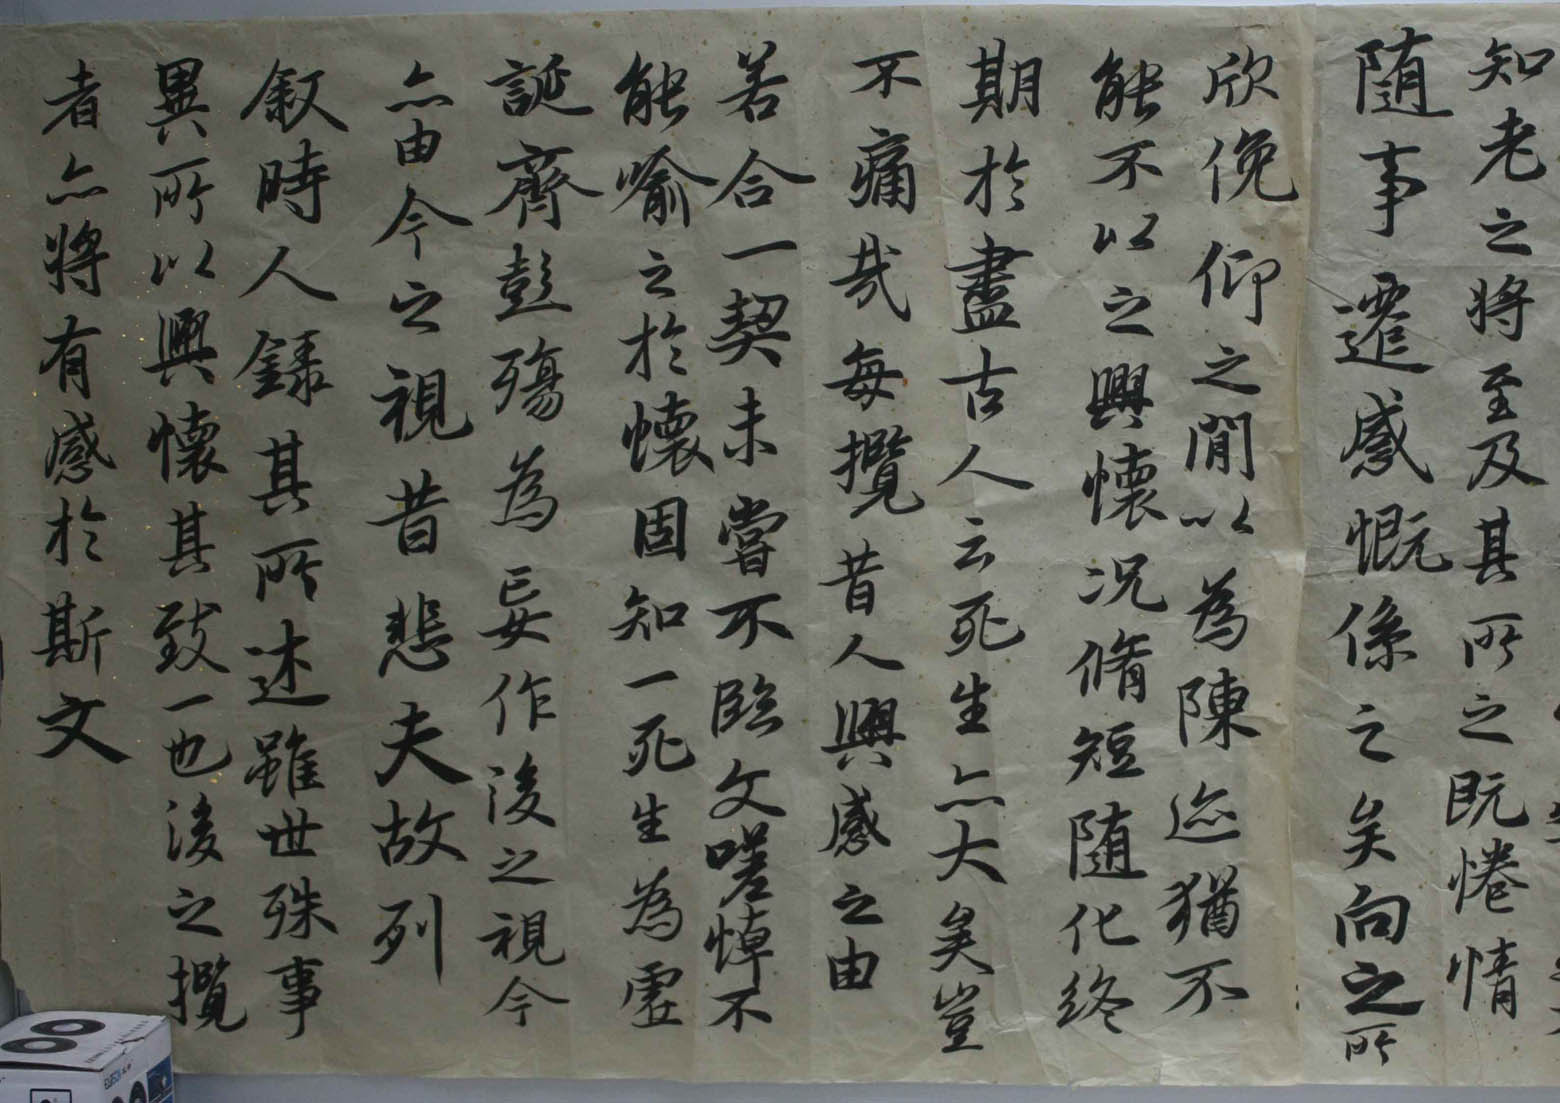 知老之将至及其所之既惓情
随事遷感慨係之矣向之所
欣俛仰之閒以為陳迹猶不
能不以之興懷况脩短随化終
期於盡古人云死生亦大矣豈
不痛哉每攬昔人興感之由
若合一契未嘗不臨文嗟悼不
能喻之於懷固知一死生為虛
誕齊彭殤為妄作後之視今
亦由今之視昔悲夫故列
叙時人錄其所述雖世殊事
異所以興懷其致一也後之攬
者亦將有感於斯文